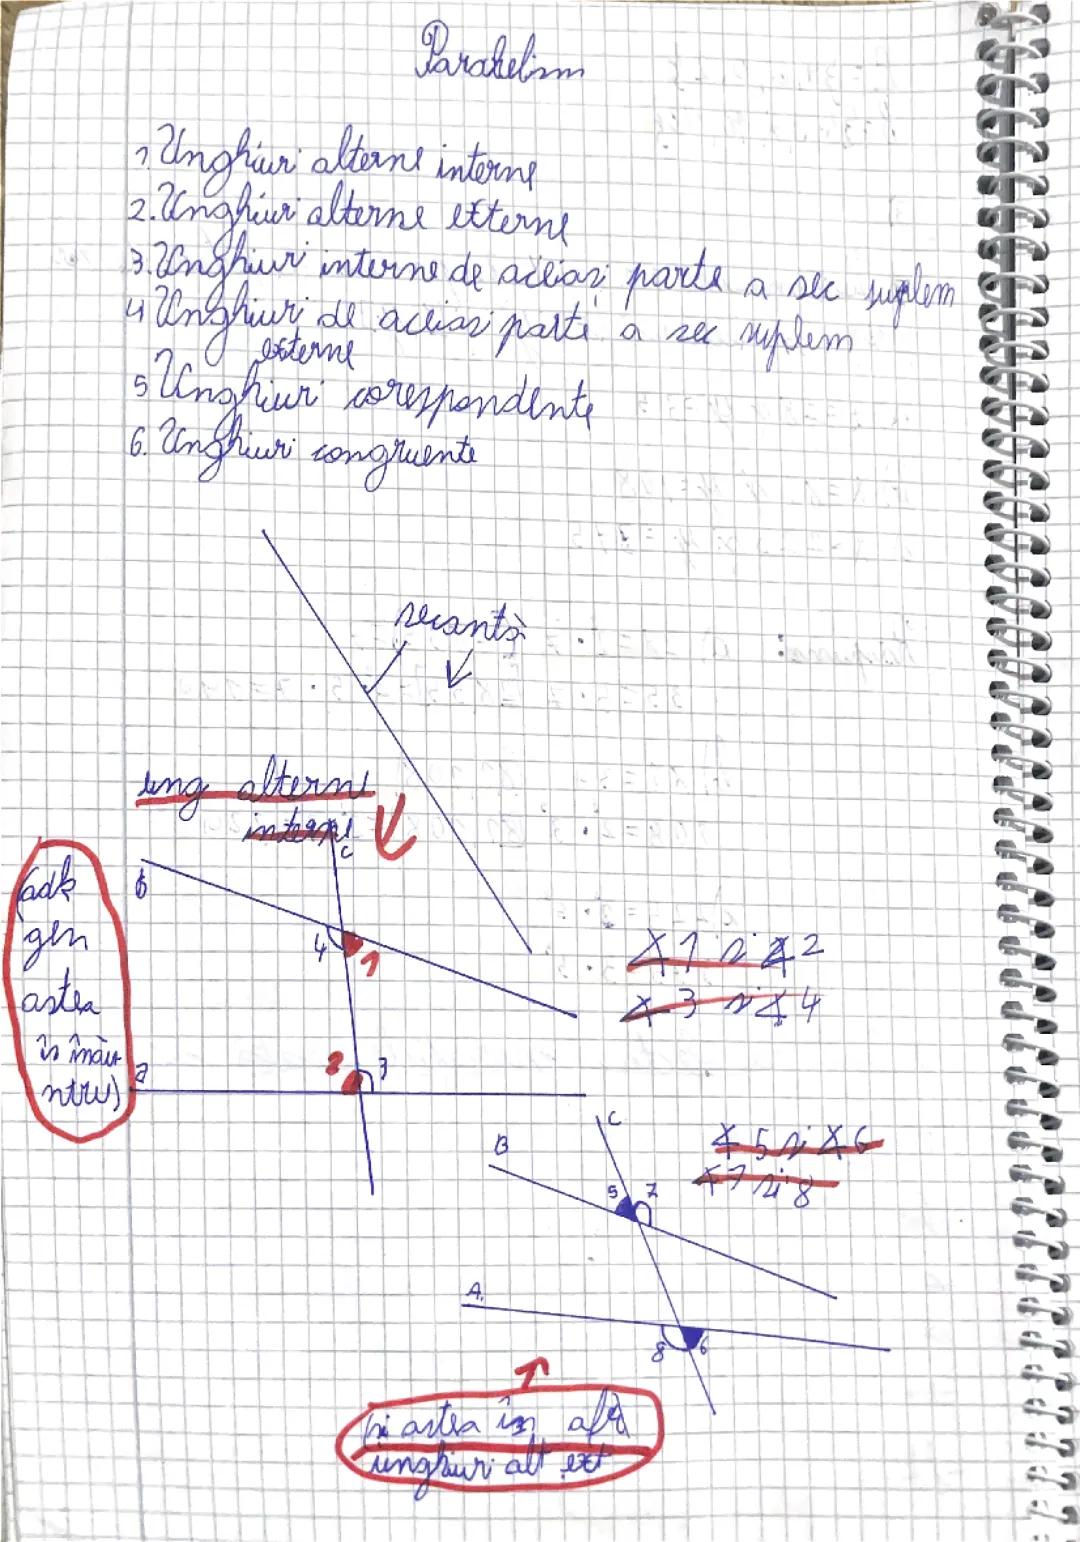 Paralelism
1 Unghiuri alterne interne
2. Unghiuri alterne externe
3. Unghiuri interne de aceiasi parte a sec suplem
4 Unghiuri de aceiasi parte a sec suplem
externe
5 Unghiuri corespondente
6. Unghiuri congruente
secantă
ung alterne
interne
C
B
(adk
gen
astea
îs înău
ntru)
4
1
2
3
∢1 si ∢2
∢3 si ∢4
C
B
∢5 si ∢6
∢7 si 8
5
7
A
8
6
(si astea îs afră
unghiuri alt ext